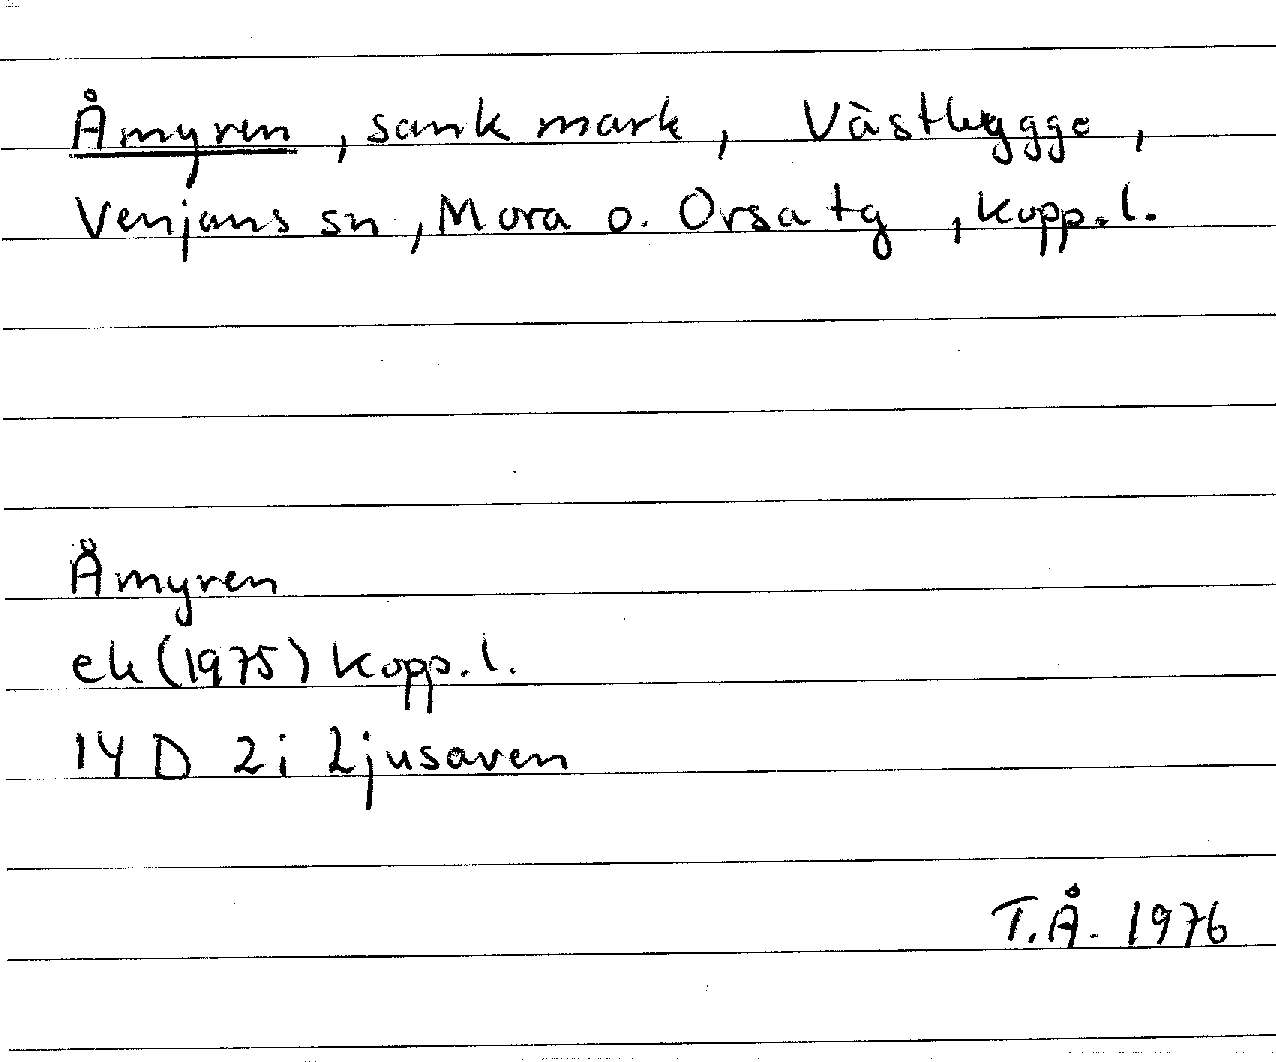 Åmyren, sank mark, Västbygge,
Venjans sn, Mora o. Orsa tg, Kopp.l.
Åmyren
ek (1975) Kopp.l.
14 D 2i Ljusaven
T.Å. 1976